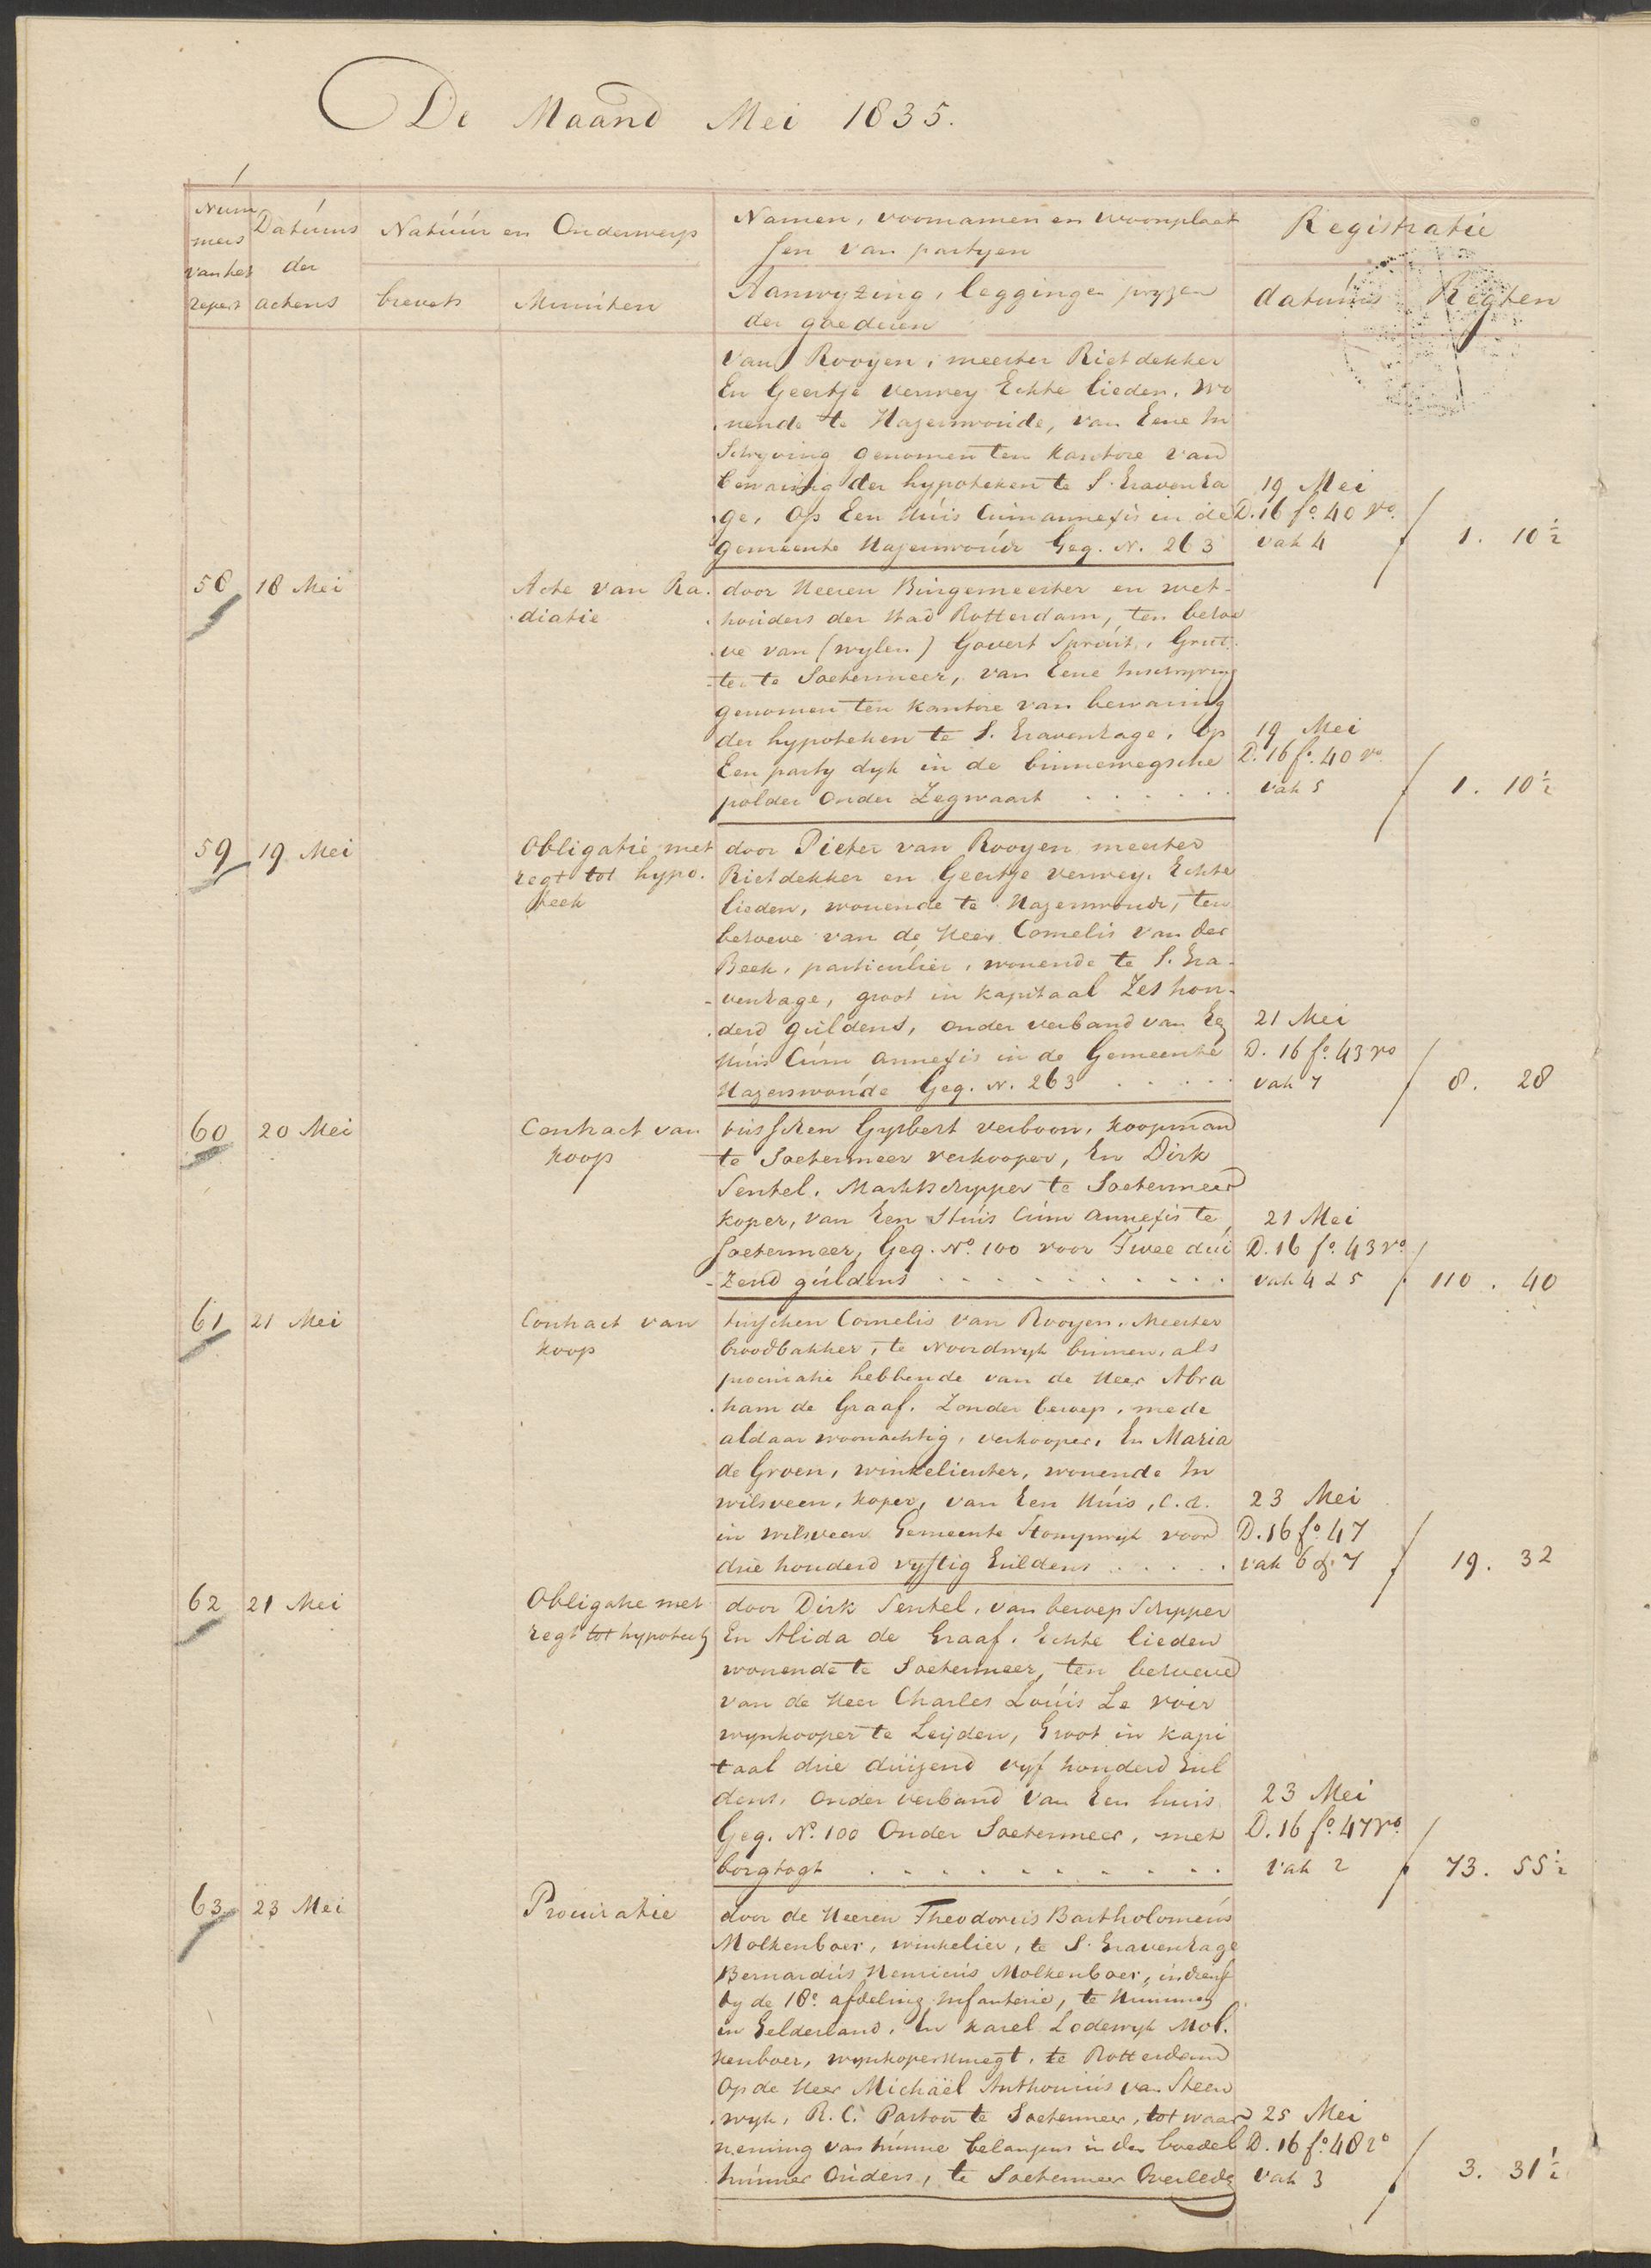 De Maand Mei 1835.
Num
mers
van het
repert
Datums
der
actens
Natuur en Onderwerp
brevets
Minuten
Namen, voornamen en woonplaat
sen van partyen
Aanwyzing, legginge pryzen
der goederen
Registratie
datums
Regten
van Rooyen, meester Rietdekker
En Geertje Verwey Echte lieden, wo
nende te Hazerswoude, van Eene In
Schryving genomen ten kantore van
bewaring der hypoteken te S. Gravenha
ge, Op Een Huis Cum annexis in de
gemeente Hazerswoude Geq. N. 263
19 Mei
D. 16 fo. 40 vo.
vak 4
f 1. 10 ½
58 18 Mei
Acte van Ra.
diatie
door Heeren Burgemeester en wet-
houders der Stad Rotterdam, ten behoe
ve van (wylen) Govert Spruit, Grut.
ter te Soetermeer, van Eene Inschryving
genomen ten kantore van bewaring
der hypoteken te S. Gravenhage, Op
Een party dyk in de binnewegsche
polder Onder Zegwaart . . . . . .
19 Mei
D. 16 fo. 40 vo.
vak 5
f 1. 10 ½
59 19 Mei
Obligatie met
regt tot hypo.
theek
door Pieter van Rooyen meester
Rietdekker en Geertje Verwey, Echte
lieden, wonende te Hazerswoude, ten
behoeve van de Heer Cornelis van der
Beek, particulier, wonende te S. Gra-
venhage, groot in kapitaal Zes hon-
derd guldens, onder verband van Een
Huis Cum annexis in de Gemeente
Hazerswoude Geq. N. 263 . . . . .
21 Mei
D. 16 fo. 43 ro
vak 7
f 8. 28
60 20 Mei
Contract van
koop
tusschen Gysbert Verboon, koopman
te Soetermeer verkooper, En Dirk
Sentel, Marktschipper te Soetermeer
koper, van Een Huis Cum annexis te
Soetermeer, Geq. No. 100 voor Twee dui
zend guldens . . . . . . . . . .
21 Mei
D. 16 fo. 43 ro
vak 4 & 5
f 110. 40
61 21 Mei
Contract van
koop
tusschen Cornelis van Rooyen, Meester
broodbakker, te Noordwyk binnen, als
procuratie hebbende van de Heer Abra
ham de Graaf, Zonder beroep, mede
aldaar woonachtig, verkooper, En Maria
de Groen, winkelierster, wonende In
wilsveen, koper, van Een Huis, C. a.
in wilsveen Gemeente Stompwyk voor
drie honderd vyftig Guldens . . . . .
23 Mei
D. 16 fo. 47
vak 6 & 7
f 19. 32
62 21 Mei
Obligatie met
regt tot hypoteek
door Dirk Sentel, van beroep Schipper
En Alida de Graaf, Echte lieden
wonende te Soetermeer, ten behoeve
van de Heer Charles Louis Le Noir
wynkooper te Leyden, Groot in kapi
taal drie duizend vyf honderd Gul
dens, Onder verband van Een huis
Geq. No. 100 Onder Soetermeer, met
borgtogt . . . . . . . . . . .
23 Mei
D. 16 fo. 47 ro.
vak 2
f 73. 55 ½
63 23 Mei
Procuratie
door de Heeren Theodorus Bartholomeus
Molkenboer, winkelier, te S. Gravenhage
Bernardus Henricus Molkenboer, in dienst
by de 18e. afdeling Infanterie, te
in Gelderland, En Karel Lodewyk Mol.
kenboer, wynkopersknegt, te Rotterdam
Op de Heer Michaël Anthonius van Steen
wyk, R. C. Pastoor te Soetermeer, tot waar
neming van hunne belangens in den boedel
hunner Ouders, te Soetermeer Overleden
25 Mei
D. 16 fo. 48 ro
vak 3
f 3. 31 ½